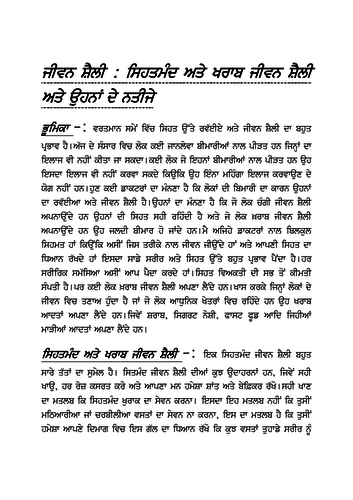 ਜੀਵਨ ਸ਼ੈਲੀ : ਸਿਹਤਮੰਦ ਅਤੇ ਖਰਾਬ ਜੀਵਨ ਸ਼ੈਲੀ
ਅਤੇ ਉਹਨਾਂ ਦੇ ਨਤੀਜੇ
ਭੂਮਿਕਾ -: ਵਰਤਮਾਨ ਸਮੇਂ ਵਿੱਚ ਸਿਹਤ ਉੱਤੇ ਰਵੱਈਏ ਅਤੇ ਜੀਵਨ ਸ਼ੈਲੀ ਦਾ ਬਹੁਤ
ਪ੍ਰਭਾਵ ਹੈ।ਅੱਜ ਦੇ ਸੰਸਾਰ ਵਿਚ ਲੋਕ ਕਈ ਜਾਨਲੇਵਾ ਬੀਮਾਰੀਆਂ ਨਾਲ ਪੀੜਤ ਹਨ ਜਿਨ੍ਹਾਂ ਦਾ
ਇਲਾਜ ਵੀ ਨਹੀਂ ਕੀਤਾ ਜਾ ਸਕਦਾ।ਕਈ ਲੋਕ ਜੋ ਇਹਨਾਂ ਬੀਮਾਰੀਆਂ ਨਾਲ ਪੀੜਤ ਹਨ ਉਹ
ਇਸਦਾ ਇਲਾਜ ਵੀ ਨਹੀਂ ਕਰਵਾ ਸਕਦੇ ਕਿਉਂਕਿ ਉਹ ਇੰਨਾ ਮਹਿੰਗਾ ਇਲਾਜ ਕਰਵਾਉਣ ਦੇ
ਯੋਗ ਨਹੀਂ ਹਨ।ਹੁਣ ਕਈ ਡਾਕਟਰਾਂ ਦਾ ਮੰਨਣਾ ਹੈ ਕਿ ਲੋਕਾਂ ਦੀ ਬਿਮਾਰੀ ਦਾ ਕਾਰਨ ਉਹਨਾਂ
ਦਾ ਰਵੱਈਆ ਅਤੇ ਜੀਵਨ ਸ਼ੈਲੀ ਹੈ।ਉਹਨਾਂ ਦਾ ਮੰਨਣਾ ਹੈ ਕਿ ਜੋ ਲੋਕ ਚੰਗੀ ਜੀਵਨ ਸ਼ੈਲੀ
ਅਪਨਾਉਂਦੇ ਹਨ ਉਹਨਾਂ ਦੀ ਸਿਹਤ ਸਹੀ ਰਹਿੰਦੀ ਹੈ ਅਤੇ ਜੋ ਲੋਕ ਖ਼ਰਾਬ ਜੀਵਨ ਸ਼ੈਲੀ
ਅਪਨਾਉਂਦੇ ਹਨ ਉਹ ਜਲਦੀ ਬੀਮਾਰ ਹੋ ਜਾਂਦੇ ਹਨ।ਮੈਂ ਅਜਿਹੇ ਡਾਕਟਰਾਂ ਨਾਲ ਬਿਲਕੁਲ
ਸਿਹਮਤ ਹਾਂ ਕਿਉਂਕਿ ਅਸੀਂ ਜਿਸ ਤਰੀਕੇ ਨਾਲ ਜੀਵਨ ਜੀਉਂਦੇ ਹਾਂ ਅਤੇ ਆਪਣੀ ਸਿਹਤ ਦਾ
ਧਿਆਨ ਰੱਖਦੇ ਹਾਂ ਇਸਦਾ ਸਾਡੇ ਸਰੀਰ ਅਤੇ ਸਿਹਤ ਉੱਤੇ ਬਹੁਤ ਪ੍ਰਭਾਵ ਪੈਂਦਾ ਹੈ।ਹਰ
ਸਰੀਰਿਕ ਸਮੱਸਿਆ ਅਸੀਂ ਆਪ ਪੈਦਾ ਕਰਦੇ ਹਾਂ।ਸਿਹਤ ਵਿਅਕਤੀ ਦੀ ਸਭ ਤੋਂ ਕੀਮਤੀ
ਸੰਪਤੀ ਹੈ।ਪਰ ਕਈ ਲੋਕ ਖ਼ਰਾਬ ਜੀਵਨ ਸ਼ੈਲੀ ਅਪਣਾ ਲੈਂਦੇ ਹਨ।ਖਾਸ ਕਰਕੇ ਜਿਨ੍ਹਾਂ ਲੋਕਾਂ ਦੇ
ਜੀਵਨ ਵਿਚ ਤਣਾਅ ਹੁੰਦਾ ਹੈ ਜਾਂ ਜੋ ਲੋਕ ਆਧੁਨਿਕ ਖੇਤਰਾਂ ਵਿਚ ਰਹਿੰਦੇ ਹਨ ਉਹ ਖਰਾਬ
ਆਦਤਾਂ ਅਪਣਾ ਲੈਂਦੇ ਹਨ।ਜਿਵੇਂ ਸ਼ਰਾਬ, ਸਿਗਰਟ ਨੋਸ਼ੀ, ਫਾਸਟ ਫੂਡ ਆਦਿ ਜਿਹੀਆਂ
ਮਾੜੀਆਂ ਆਦਤਾਂ ਅਪਣਾ ਲੈਂਦੇ ਹਨ।
ਸਿਹਤਮੰਦ ਅਤੇ ਖਰਾਬ ਜੀਵਨ ਸ਼ੈਲੀ -: ਇਕ ਸਿਹਤਮੰਦ ਜੀਵਨ ਸ਼ੈਲੀ ਬਹੁਤ
ਸਾਰੇ ਤੱਤਾਂ ਦਾ ਸੁਮੇਲ ਹੈ। ਸਿਤਮੰਦ ਜੀਵਨ ਸ਼ੈਲੀ ਦੀਆਂ ਕੁਝ ਉਦਾਹਰਨਾਂ ਹਨ, ਜਿਵੇਂ ਸਹੀ
ਖਾਉ, ਹਰ ਰੋਜ਼ ਕਸਰਤ ਕਰੋ ਅਤੇ ਆਪਣਾ ਮਨ ਹਮੇਸ਼ਾ ਸ਼ਾਂਤ ਅਤੇ ਬੇਫ਼ਿਕਰ ਰੱਖੋ।ਸਹੀ ਖਾਣ
ਦਾ ਮਤਲਬ ਹੈ ਕਿ ਸਿਹਤਮੰਦ ਖੁਰਾਕ ਦਾ ਸੇਵਨ ਕਰਨਾ। ਇਸਦਾ ਇਹ ਮਤਲਬ ਨਹੀਂ ਕਿ ਤੁਸੀਂ
ਮਠਿਆਈਆਂ ਜਾਂ ਚਰਬੀਲੀਆਂ ਵਸਤਾਂ ਦਾ ਸੇਵਨ ਨਾ ਕਰਨਾ, ਇਸ ਦਾ ਮਤਲਬ ਹੈ ਕਿ ਤੁਸੀਂ
ਹਮੇਸ਼ਾ ਆਪਣੇ ਦਿਮਾਗ ਵਿਚ ਇਸ ਗੱਲ ਦਾ ਧਿਆਨ ਰੱਖੋ ਕਿ ਕੁਝ ਵਸਤਾਂ ਤੁਹਾਡੇ ਸਰੀਰ ਨੂੰ